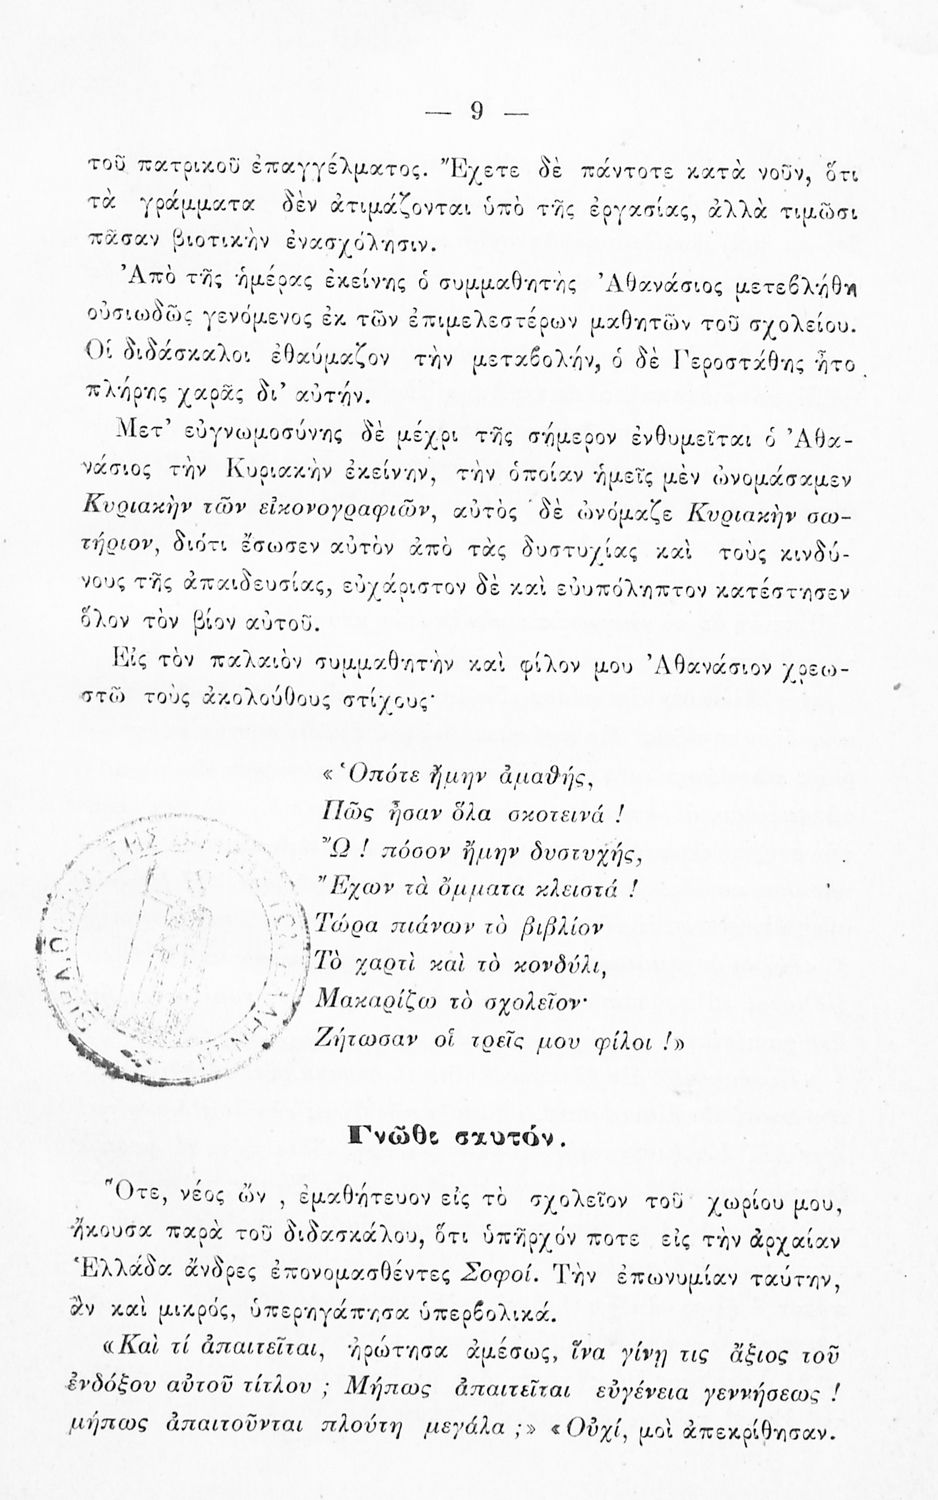 — 9 —
τοῦ πατρικοῦ ἐπαγγέλματος. Ἔχετε δὲ πάντοτε κατὰ νοῦν, ὅτι
τὰ γράμματα δὲν ἀτιμάζονται ὑπὸ τῆς ἐργασίας, ἀλλὰ τιμῶσι
πᾶσαν βιοτικὴν ἐνασχόλησιν.
Ἀπὸ τῆς ἡμέρας ἐκείνης ὁ συμμαθητὴς Ἀθανάσιος μετεβλήθη
οὐσιωδῶς γενόμενος ἐκ τῶν ἐπιμελεστέρων μαθητῶν τοῦ σχολείου.
Οἱ διδάσκαλοι ἐθαύμαζον τὴν μεταβολήν, ὁ δὲ Γεροστάθης ἦτο
πλήρης χαρᾶς δι’ αὐτήν.
Μετ’ εὐγνωμοσύνης δὲ μέχρι τῆς σήμερον ἐνθυμεῖται ὁ Ἀθα-
νάσιος τὴν Κυριακὴν ἐκείνην, τὴν ὁποίαν ἡμεῖς μὲν ὠνομάσαμεν
Κυριακὴν τῶν εἰκονογραφιῶν, αὐτὸς δὲ ὠνόμαζε Κυριακὴν σω-
τήριον, διότι ἔσωσεν αὐτὸν ἀπὸ τὰς δυστυχίας καὶ τοὺς κινδύ-
νους τῆς ἀπαιδευσίας, εὐχάριστον δὲ καὶ εὐυπόληπτον κατέστησεν
ὅλον τὸν βίον αὐτοῦ.
Εἰς τὸν παλαιὸν συμμαθητὴν καὶ φίλον μου Ἀθανάσιον χρεω-
στῶ τοὺς ἀκολούθους στίχους·
« Ὁπότε ἤμην ἀμαθής,
Πῶς ἦσαν ὅλα σκοτεινά !
Ὢ ! πόσον ἤμην δυστυχής,
Ἔχων τὰ ὄμματα κλειστά !
Τώρα πιάνων τὸ βιβλίον
Τὸ χαρτὶ καὶ τὸ κονδύλι,
Μακαρίζω τὸ σχολεῖον·
Ζήτωσαν οἱ τρεῖς μου φίλοι !»
Γνῶθι σαυτόν.
Ὅτε, νέος ὤν , ἐμαθήτευον εἰς τὸ σχολεῖον τοῦ χωρίου μου,
ἤκουσα παρὰ τοῦ διδασκάλου, ὅτι ὑπῆρχόν ποτε εἰς τὴν ἀρχαίαν
Ἑλλάδα ἄνδρες ἐπονομασθέντες Σοφοί. Τὴν ἐπωνυμίαν ταύτην,
ἂν καὶ μικρός, ὑπερηγάπησα ὑπερβολικά.
«Καὶ τί ἀπαιτεῖται, ἠρώτησα ἀμέσως, ἵνα γίνῃ τις ἄξιος τοῦ
ἐνδόξου αὐτοῦ τίτλου ; Μήπως ἀπαιτεῖται εὐγένεια γεννήσεως !
μήπως ἀπαιτοῦνται πλούτη μεγάλα ;» «Οὐχί, μοὶ ἀπεκρίθησαν.